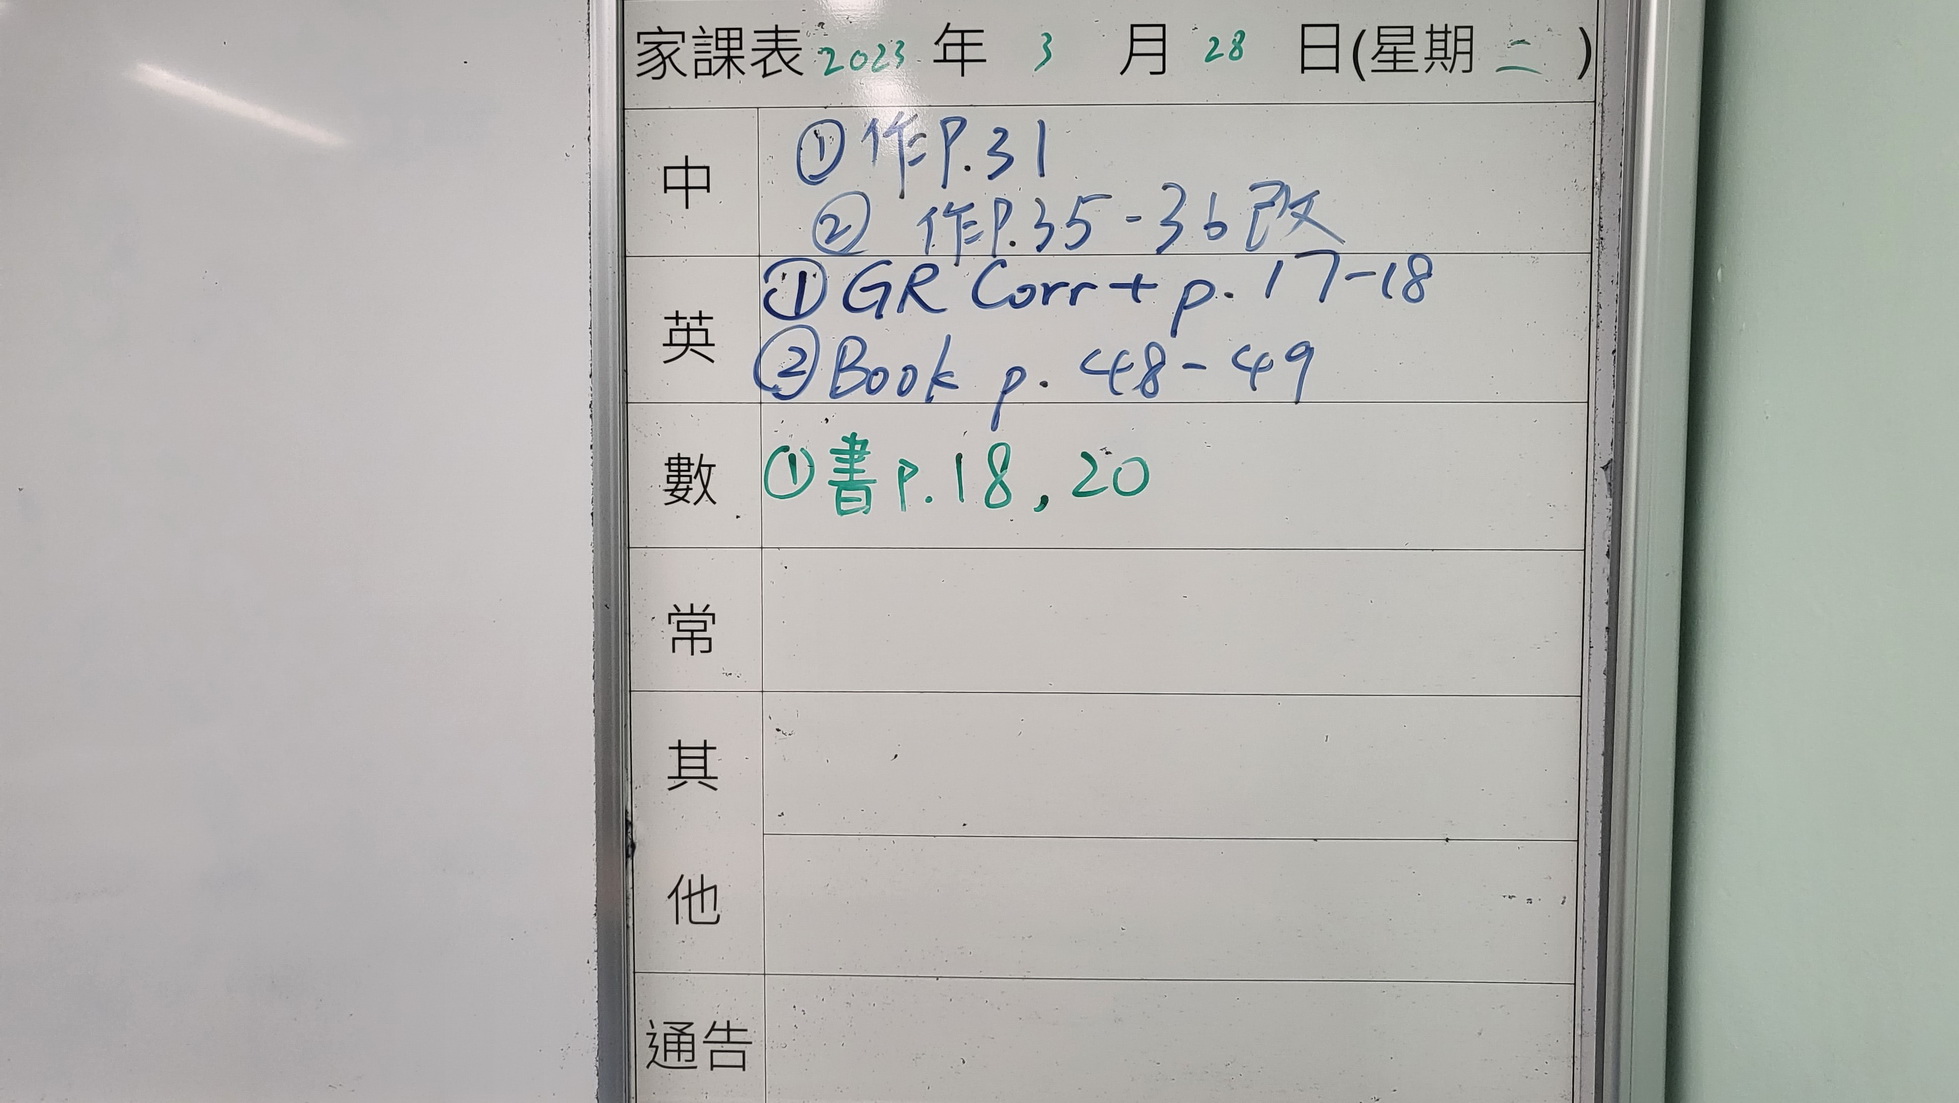 家課表 2023 年 3 月 28 日(星期 二 )
中 ①作P.31
② 作P.35-36改
英 ①GR Corr + p. 17-18
②Book p. 48-49
數 ①書P.18, 20
常
其
他
通告